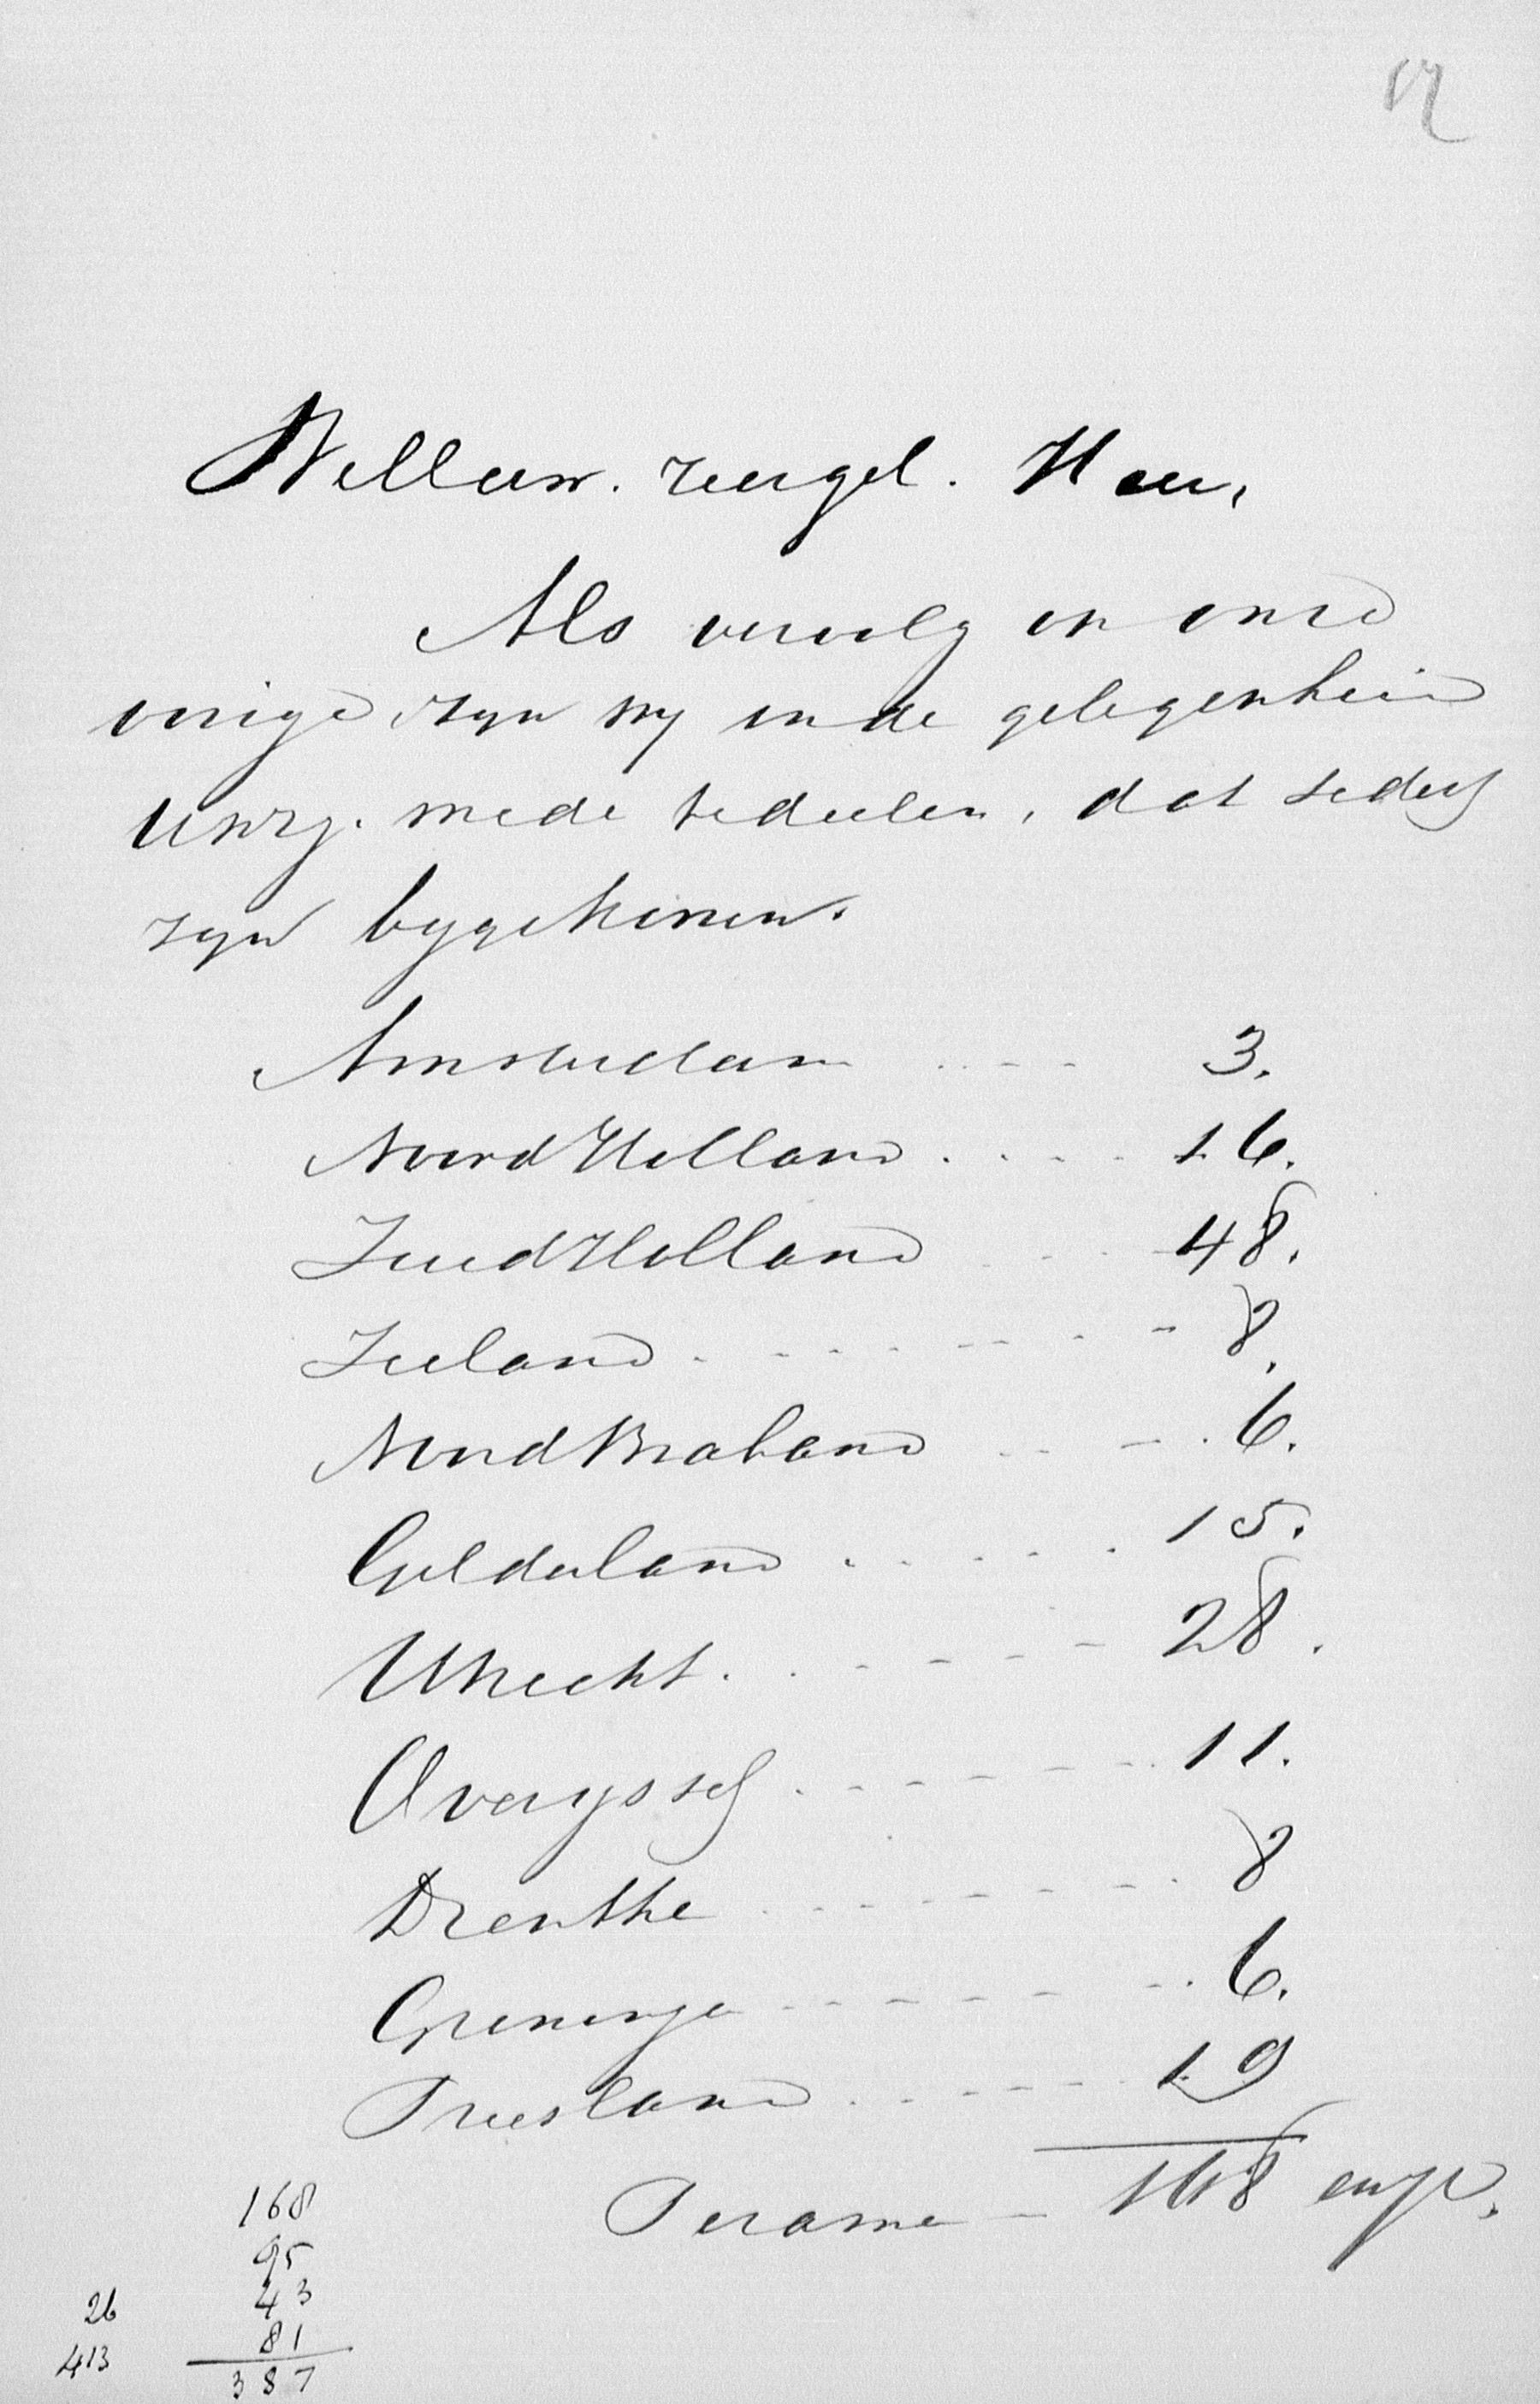 17
WelEerw. zeergel. Heer,
Als vervolg op onze
vorige zyn wy in de gelegenheid
UwEg. mede te deelen, dat sedert
zyn bygekomen.
Amsterdam .... 3.
Noord Holland .... 16.
Zuid Holland ... 48.
Zeeland ........ 8.
Noord Braband .... 6.
Gelderland ...... 15.
Utrecht ...... 28.
Overyssel ....... 11.
Drenthe ....... 8
Groningen ....... 6.
Friesland ...... 19
Te zame — 168 expl.
168
95
26 43
81
413 387